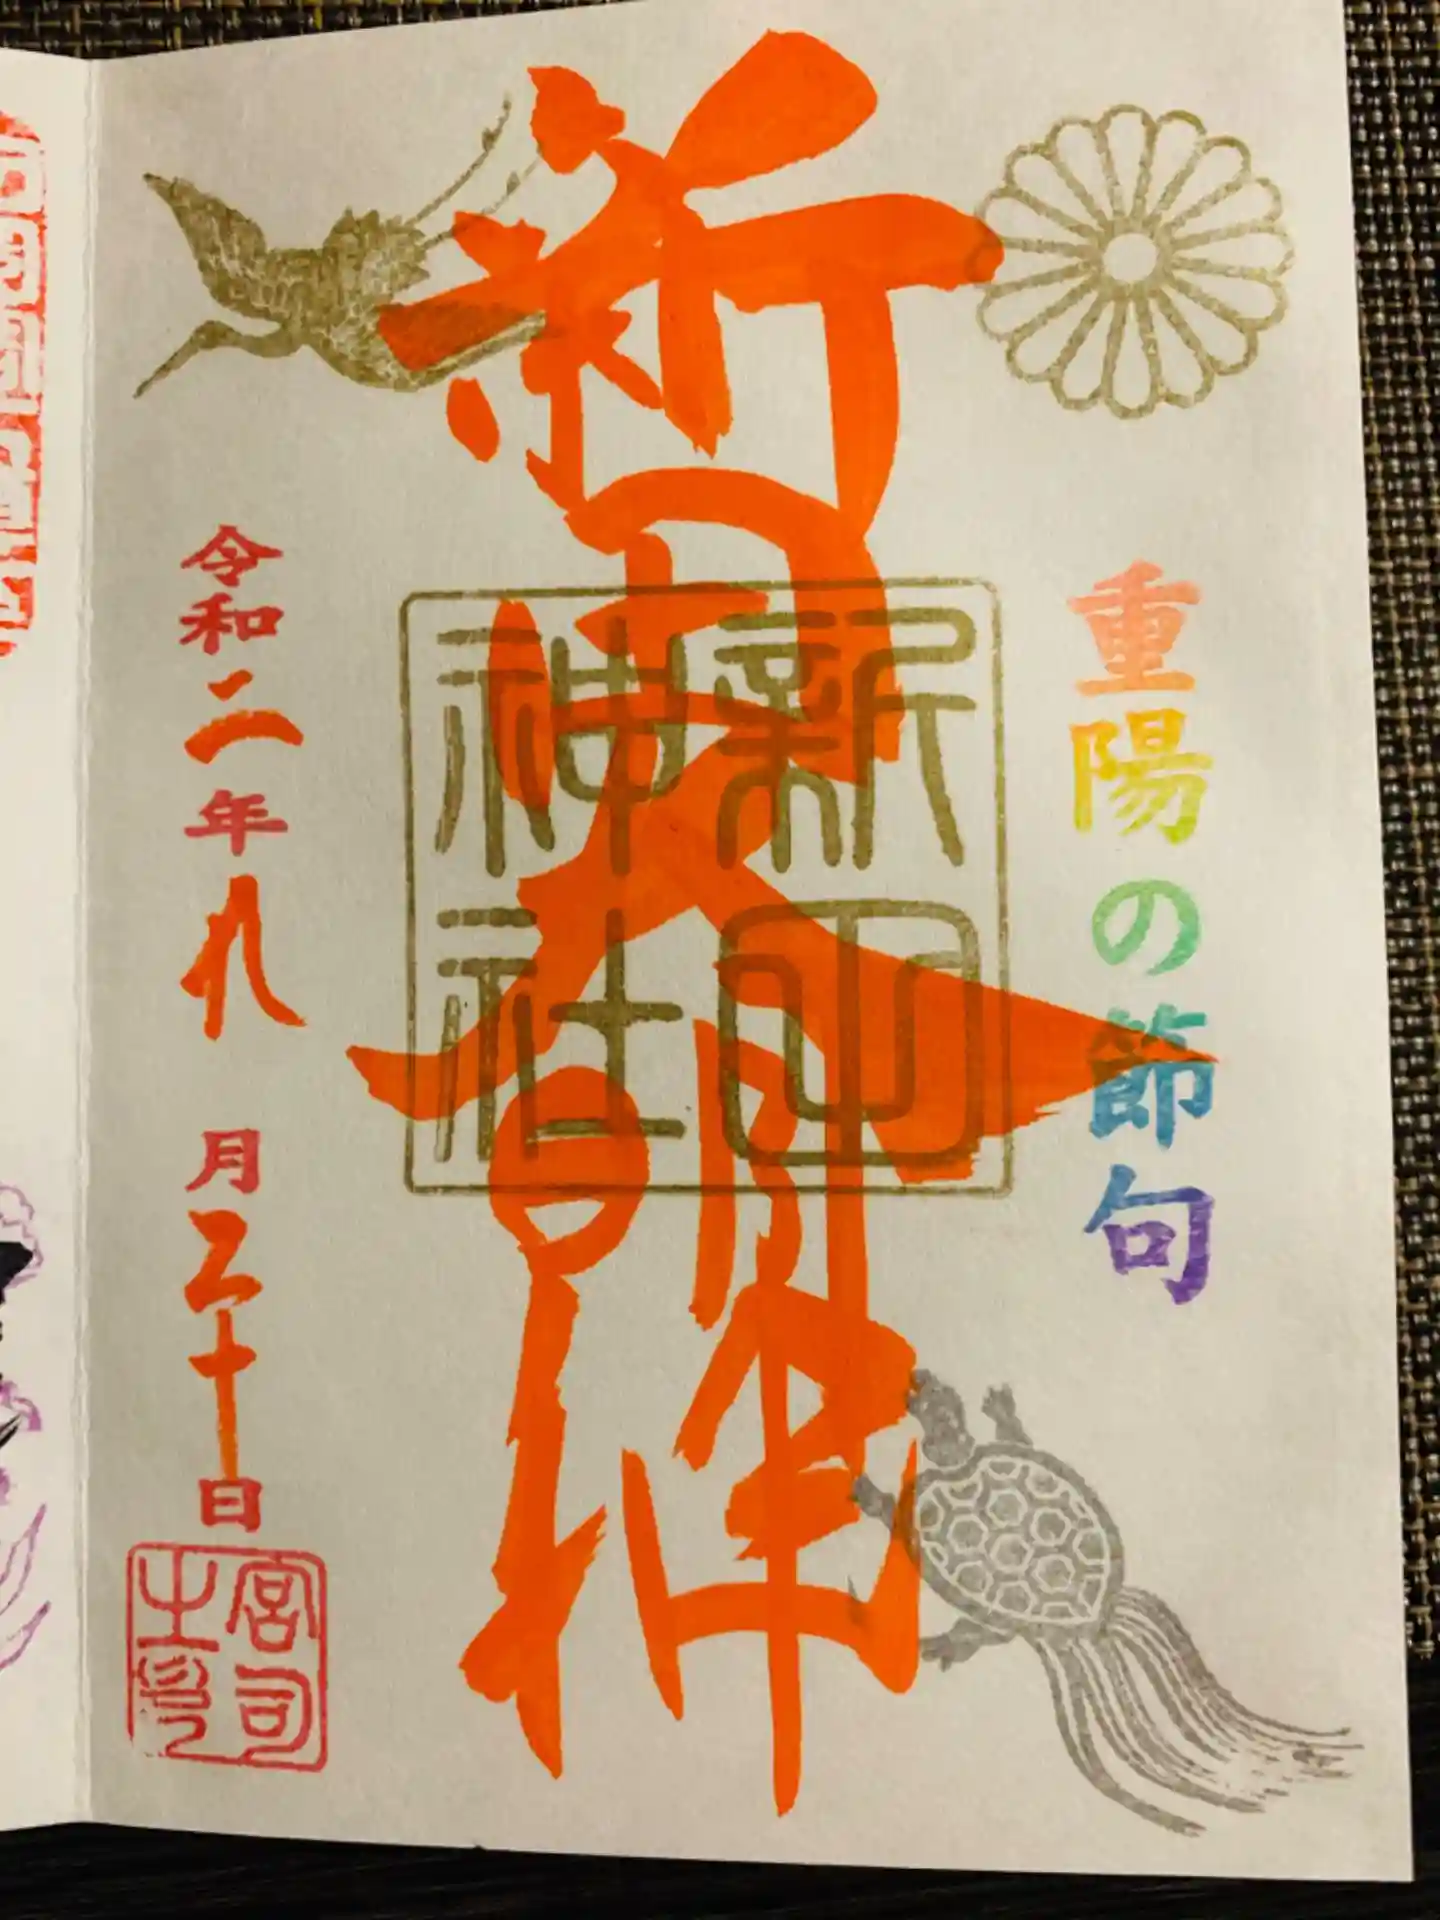 重陽の節句
新田大明神
新田
神社
令和二年九月二十日
宮司
之印